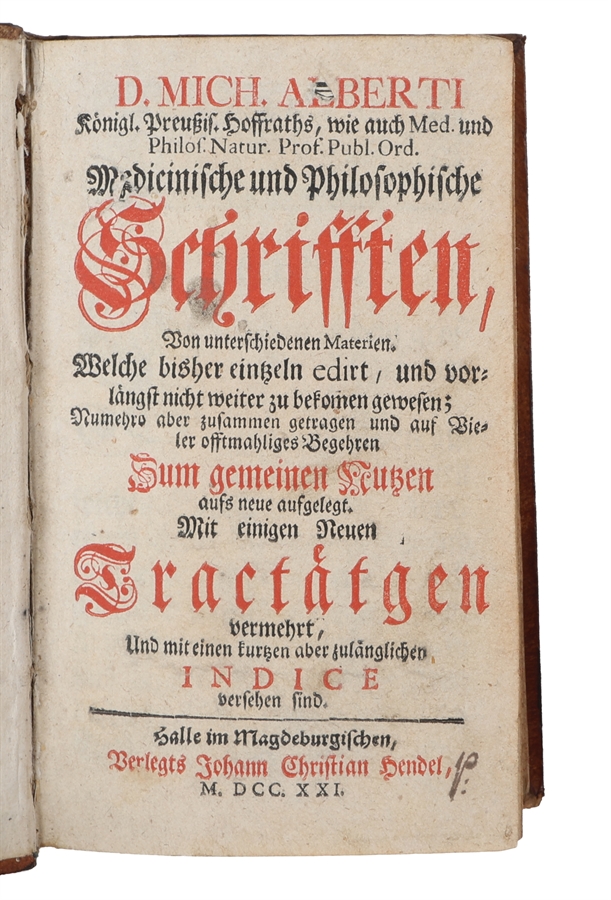 D. MICH. ALBERTI
Königl. Preußis. Hoffraths, wie auch Med. und
Philos. Natur. Prof. Publ. Ord.
Medicinische und Philosophische
Schrifften,
Von unterschiedenen Materien.
Welche bisher eintzeln edirt, und vor-
längst nicht weiter zu bekomen gewesen;
Numehro aber zusammen getragen und auf Vie-
ler offtmahliges Begehren
Zum gemeinen Nutzen
aufs neue aufgelegt.
Mit einigen Neuen
Tractätgen
vermehrt,
Und mit einen kurtzen aber zulänglichen
INDICE
versehen sind.
Halle im Magdeburgischen,
Verlegts Johann Christian Hendel,
M. DCC. XXI.